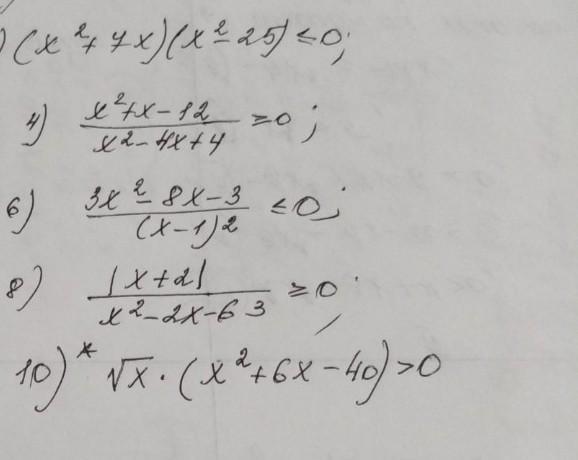 ) (x² + 7x)(x² - 25) ≤ 0;
4) (x² + x - 12)/(x² - 4x + 4) ≥ 0;
6) (3x² - 8x - 3)/(x - 1)² ≤ 0;
8) |x + 2|/(x² - 2x - 63) ≥ 0;
10)* √x · (x² + 6x - 40) > 0